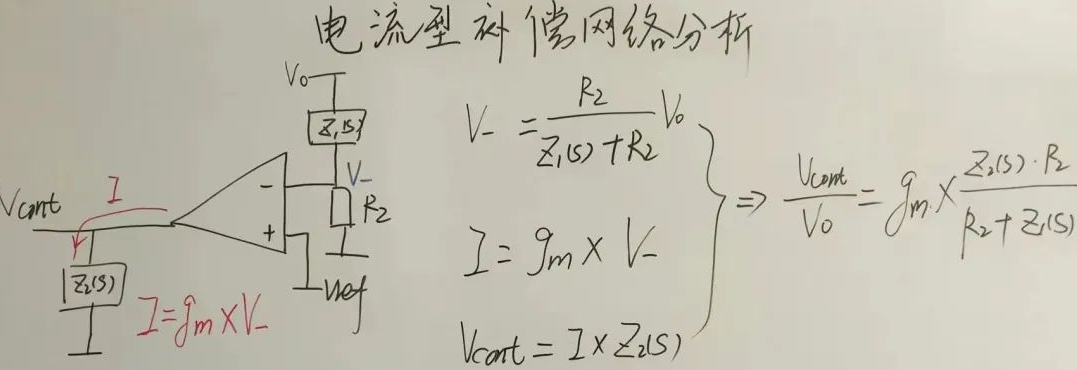 电流型补偿网络分析
Vo
Z₁(s)
V-
R₂
-
+
Vref
I
Vcont
Z₂(s)
I=gm×V-
V- = R₂/(Z₁(s)+R₂) Vo
I = gm × V-
Vcont = I×Z₂(s)
⇒ Vcont/Vo = gm × (Z₂(s)·R₂)/(R₂+Z₁(s))